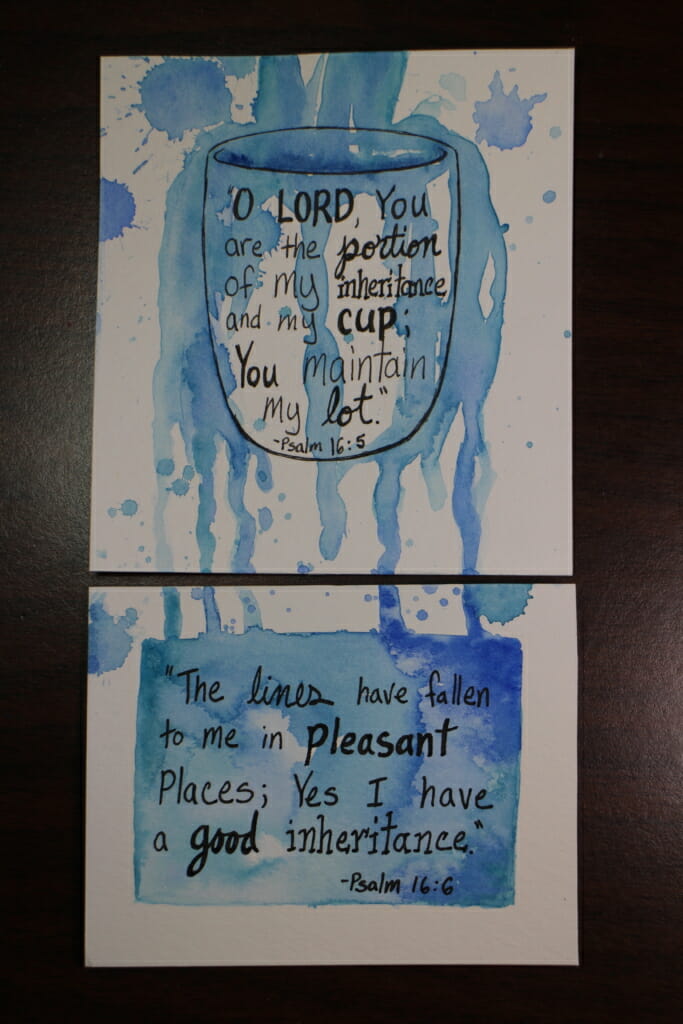 "O LORD, You
are the portion
of my inheritance
and my cup;
You maintain
my lot."
-Psalm 16:5
"The lines have fallen
to me in pleasant
Places; Yes I have
a good inheritance."
-Psalm 16:6